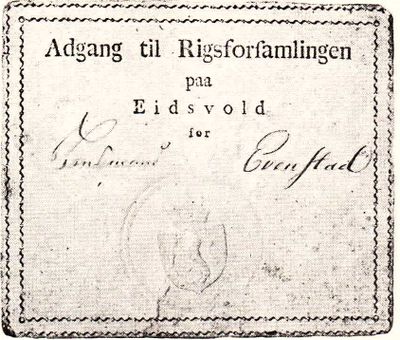 Adgang til Rigsforsamlingen
paa
Eidsvold
for
Lensmand Evenstad